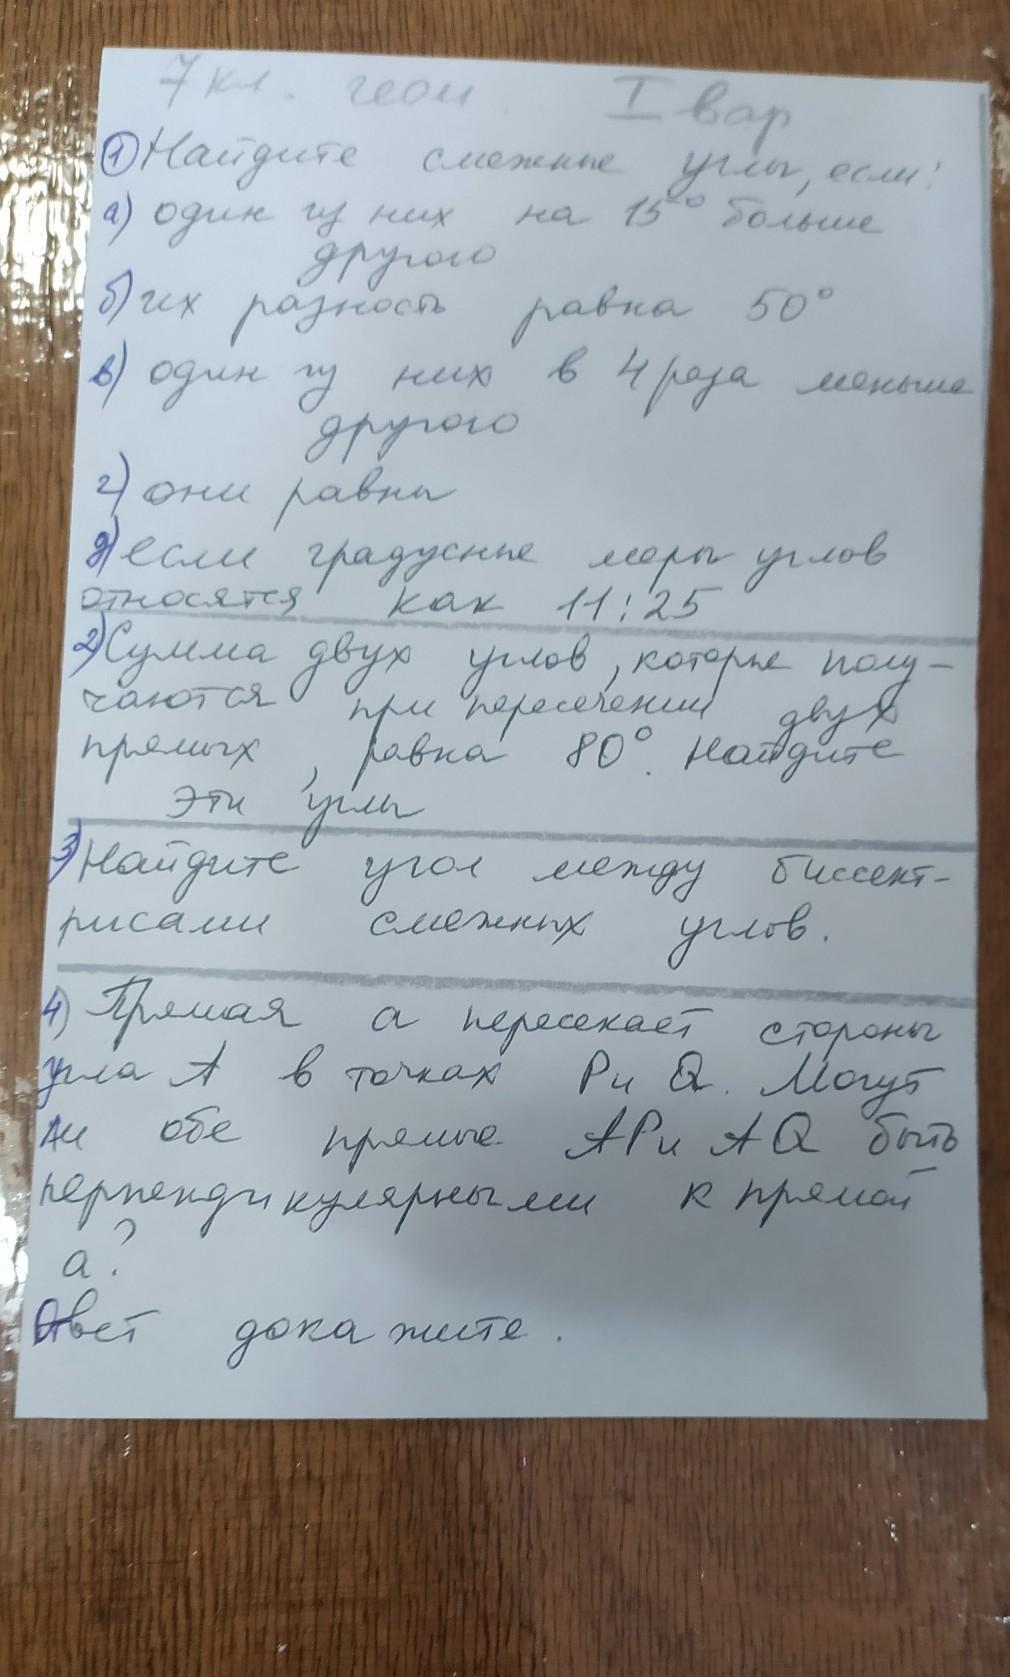 7 кл. геом. I вар
① Найдите смежные углы, если:
а) один из них на 15° больше
другого
б) их разность равна 50°
в) один из них в 4 раза меньше
другого
г) они равны
д) если градусные меры углов
относятся как 11:25
2) Сумма двух углов, которые полу-
чаются при пересечении двух
прямых, равна 80°. Найдите
эти углы
3) Найдите угол между биссект-
рисами смежных углов.
4) Прямая а пересекает стороны
угла А в точках Р и Q. Могут
ли обе прямые АР и АQ быть
перпендикулярными к прямой
а?
Овет докажите.